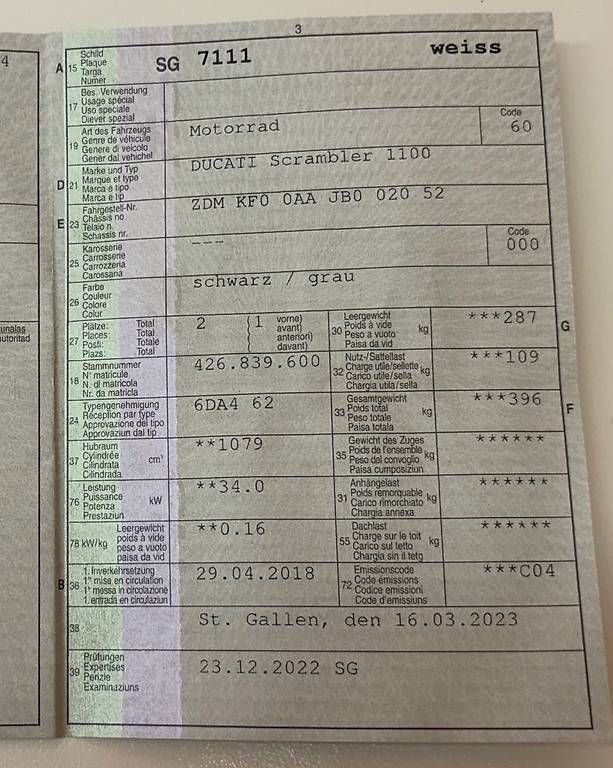 3
4
A 15 Schild
Plaque
Targa
Numer
SG 7111 weiss
17 Bes. Verwendung
Usage spécial
Uso speciale
Diever spezial
19 Art des Fahrzeugs
Genre de véhicule
Genere di veicolo
Gener dal vehichel
Motorrad
Code
60
D 21 Marke und Typ
Marque et type
Marca e tipo
Marca e tip
DUCATI Scrambler 1100
E 23 Fahrgestell-Nr.
Châssis no
Telaio n.
Schassis nr.
ZDM KF0 0AA JB0 020 52
25 Karosserie
Carrosserie
Carrozzeria
Carossaria
---
Code
000
26 Farbe
Couleur
Colore
Colur
schwarz / grau
27 Plätze: Total
Places: Total
Posti: Totale
Plazs: Total
2 (1 vorne)
avant)
anteriori)
davant)
30 Leergewicht
Poids à vide
Peso a vuoto
Paisa da vid
kg
***287
G
18 Stammnummer
N° matricule
N. di matricola
Nr. da matricla
426.839.600
32 Nutz-/Sattellast
Charge utile/sellette
Carico utile/sella
Chargia utila/sella
kg
***109
24 Typengenehmigung
Réception par type
Approvazione del tipo
Approvaziun dal tip
6DA4 62
33 Gesamtgewicht
Poids total
Peso totale
Paisa totala
kg
***396
F
37 Hubraum
Cylindrée
Cilindrata
Cilindrada
cm³
**1079
35 Gewicht des Zuges
Poids de l'ensemble
Peso del convoglio
Paisa cumposiziun
kg
******
76 Leistung
Puissance
Potenza
Prestaziun
kW
**34.0
31 Anhängelast
Poids remorquable
Carico rimorchiato
Chargia annexa
kg
******
78 kW/kg
Leergewicht
poids à vide
peso a vuoto
paisa da vid
**0.16
55 Dachlast
Charge sur le toit
Carico sul tetto
Chargia sin il tetg
kg
******
B 36 1. Inverkehrsetzung
1re mise en circulation
1a messa in circolazione
1. entrada en circulaziun
29.04.2018
72 Emissionscode
Code émissions
Codice emissioni
Code d'emissiuns
***C04
38
St. Gallen, den 16.03.2023
39 Prüfungen
Expertises
Perizie
Examinaziuns
23.12.2022 SG